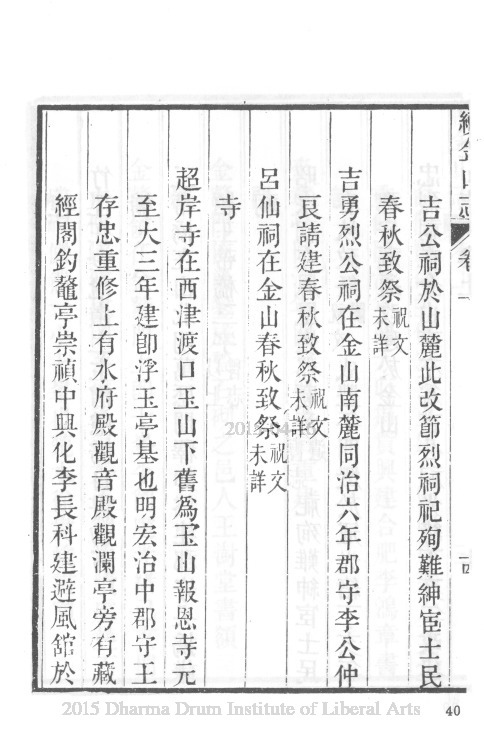 續金山志 卷上
十四
吉公祠於山麓此改節烈祠祀殉難紳宦士民
春秋致祭祝文未詳
吉勇烈公祠在金山南麓同治六年郡守李公仲
良請建春秋致祭祝文未詳
呂仙祠在金山春秋致祭祝文未詳
寺
超岸寺在西津渡口玉山下舊爲玉山報恩寺元
至大三年建卽浮玉亭基也明宏治中郡守王
存忠重修上有水府殿觀音殿觀瀾亭旁有藏
經閣釣鼇亭崇禎中興化李長科建避風舘於
2015 Dharma Drum Institute of Liberal Arts
40